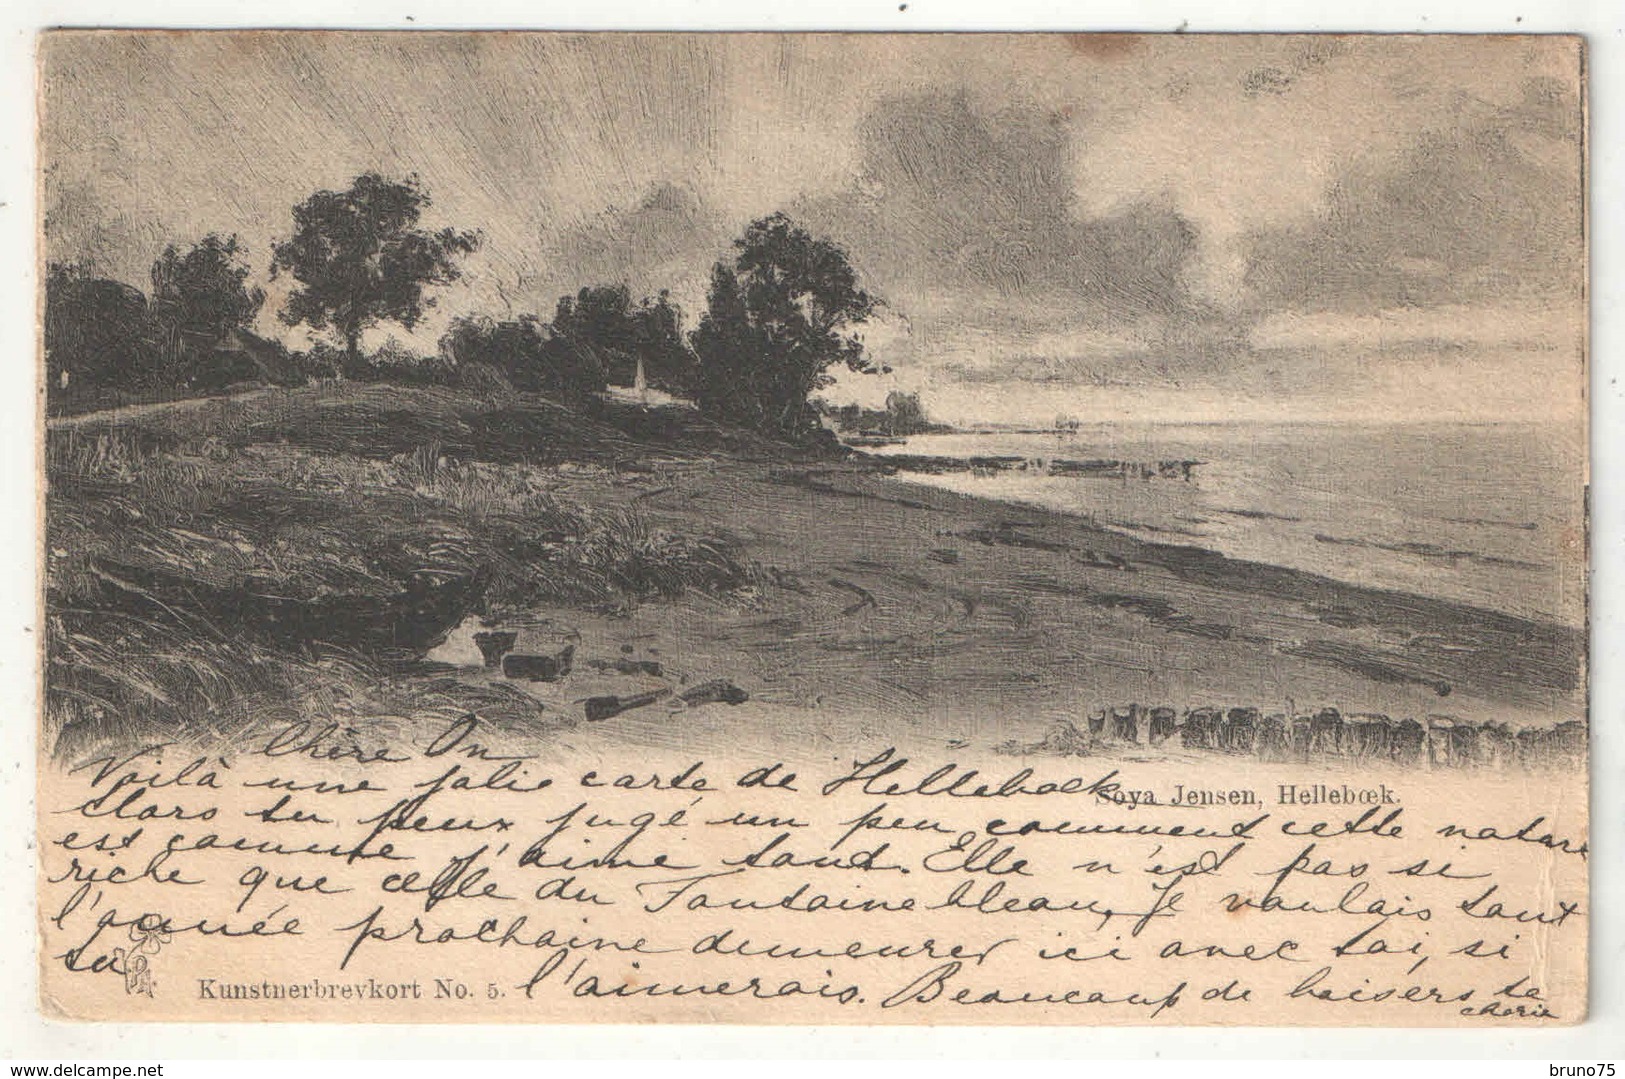 Chère On
Voilà une jolie carte de Helleboek
Soya Jensen, Hellebœk.
alors tu peux jugé un peu comment cette nature
est comme j'aime tant. Elle n'est pas si
riche que celle du Fontainebleau, je voulais tant
l'année prochaine demeurer ici avec toi, si
tu
PH
Kunstnerbrevkort No. 5.
l'aimerais. Beaucoup de baisers ta
cherie
delcampe.net
bruno75